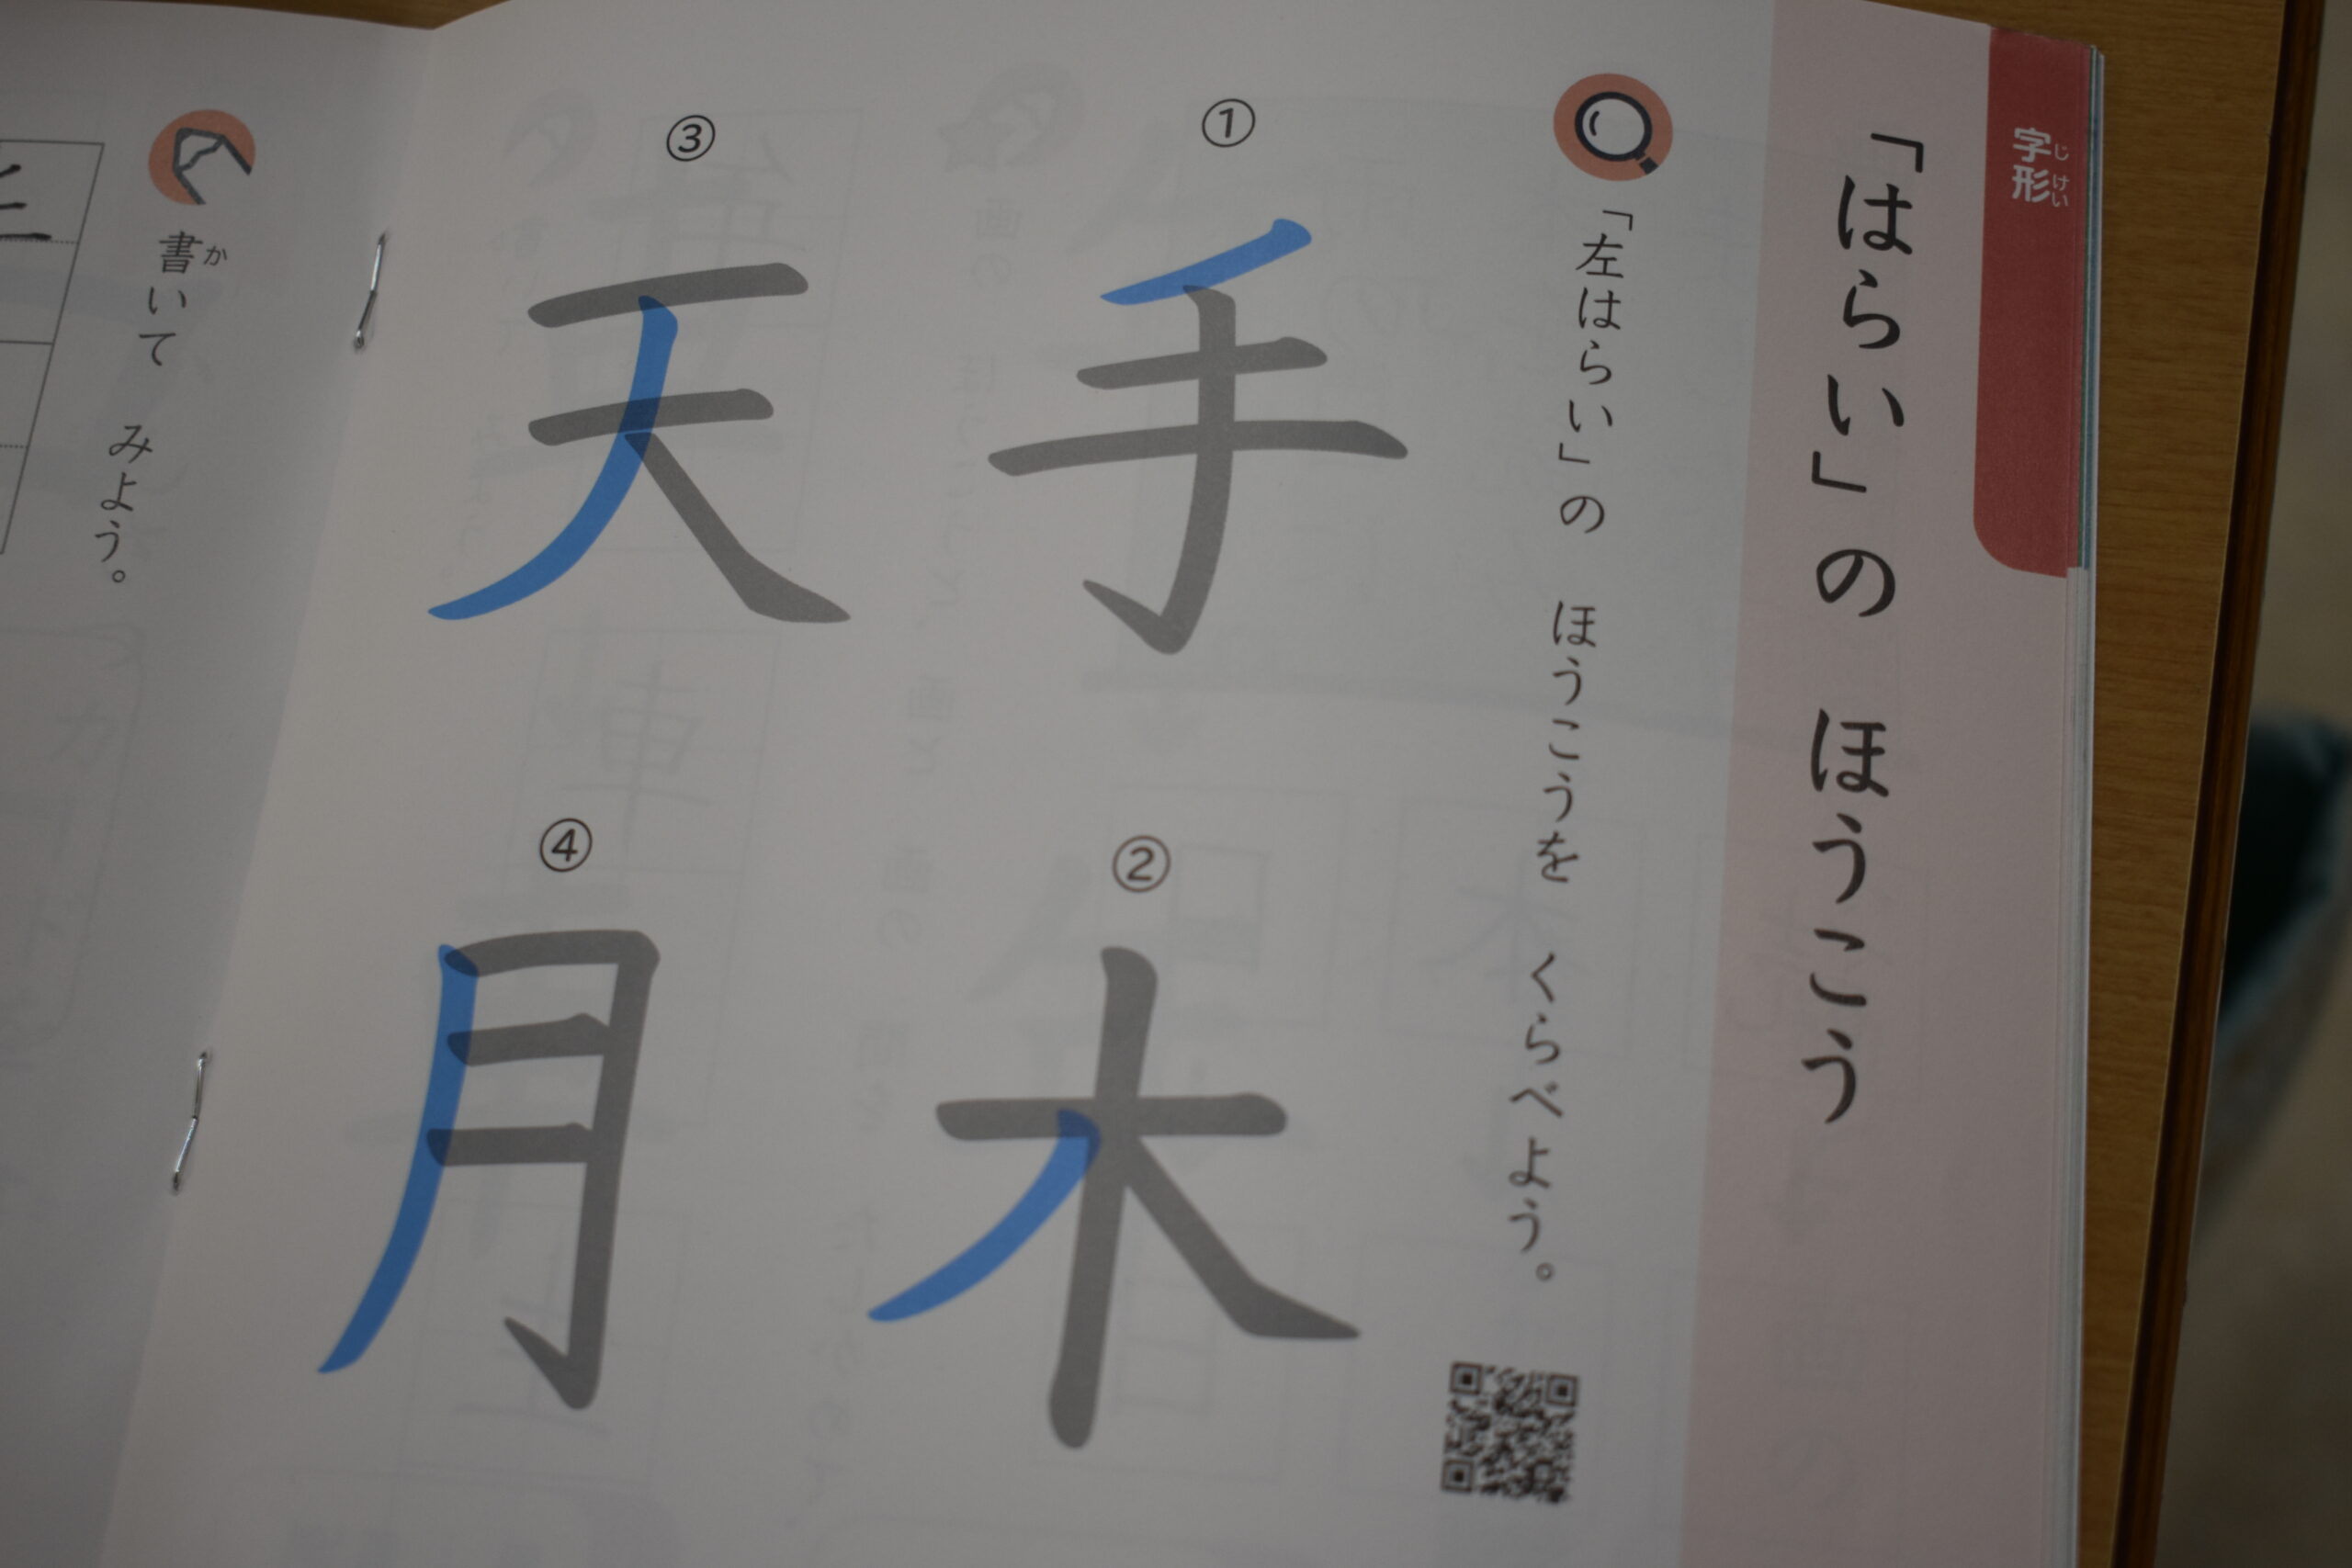 字形
じけい
「はらい」の ほうこう
「左はらい」の ほうこうを くらべよう。
①
手
②
木
③
天
④
月
書いて みよう。
か